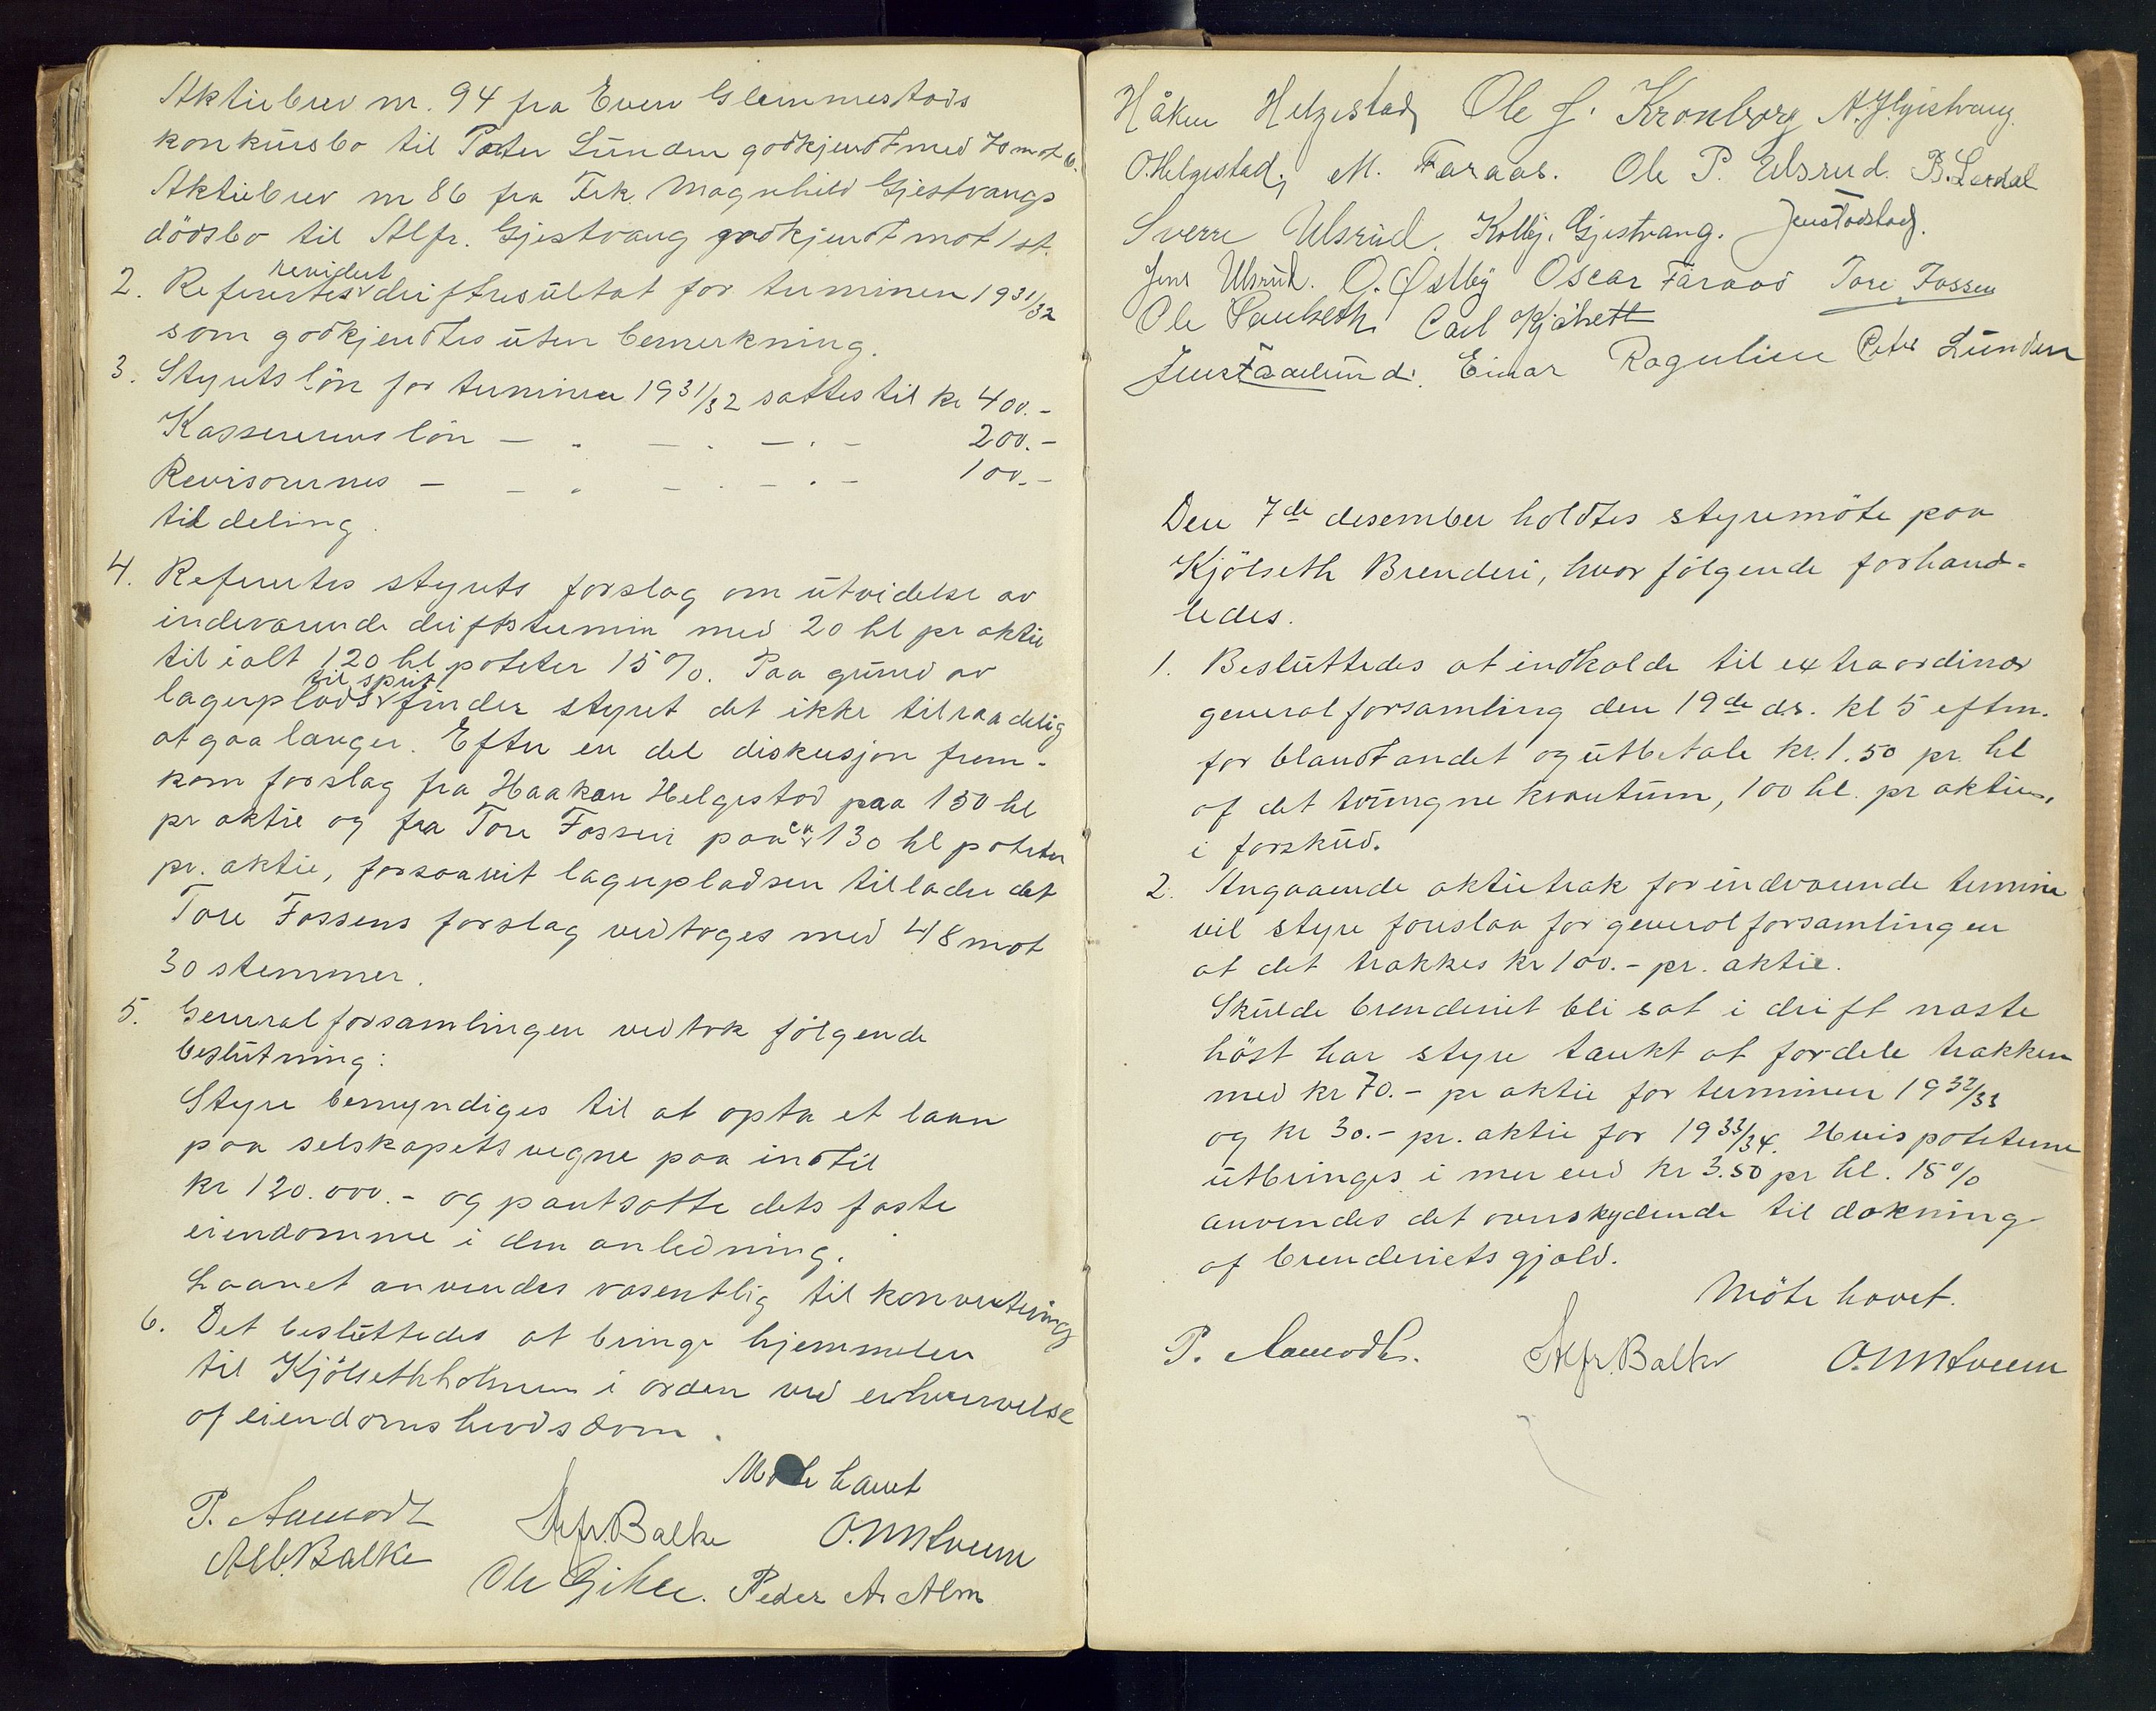 Aktiebrev nr. 94 fra Even Glemmestads
konkursbo til Peter Lunden godkjendt med 70 mot 6.
Aktiebrev nr 86 fra Frk. Magnhild Gjestvangs
dödsbo til Alfr. Gjestvang godkjendt mot 1 st.
2. Refertes revidert driftresultat for terminen 1931/32
som godkjendtes uten bemerkning.
3. Styrets lön for terminen 1931/32 sattes til kr 400.-
Kassererens lön — " — " — " — 200.-
Revisorernes — — " — " — " — 100.-
til deling.
4. Refertes styrets forslag om utvidelse av
indevarende driftstermin med 20 hl pr aktie
til ialt 120 hl poteter 15%. Paa grund av
lagerplads til sprit finder styret det ikke tilraadelig
at gaa længer. Efter en del diskusjon frem-
kom forslag fra Haakon Helgestad paa 150 hl
pr aktie og fra Tore Fossen paa ca 130 hl poteter
pr. aktie, forsaavit lagerpladsen tillader det
Tore Fossens forslag vedtoges med 48 mot
30 stemmer.
5. Generalforsamlingen vedtok fölgende
beslutning:
Styre bemyndiges til at opta et laan
paa selskapets vegne paa indtil
kr 120.000.- og pantsætte dets faste
eiendomme i den anledning.
Laanet anvendes væsentlig til konvertering
6. Det besluttedes at bringe hjemmelen
til Kjölsethholmen i orden ved erhvervelse
af eiendomshevdsdom.
Möte hævet
P. Aamodt Alfr. Balke O. M. Hveem
Alb. Balke Ole Gihle. Peder A. Alm
Håken Helgestad Ole J. Kronborg A. J. Gjestvang.
O. Helgestad, M. Faraas. Ole P. Ulsrud. B. Lerdal
Sverre Ulsrud. Kolbj. Gjestvang. Jens Todstad.
Jens Ulsrud. O. Østby Oscar Faraas Tore Fossen
Ole Paulseth Carl Kjölseth
Jens Faalund. Einar Rognlien Peter Lunden
Den 7de desember holdtes styremöte paa
Kjölseth Brenderi, hvor fölgende forhand-
ledes.
1. Besluttedes at indkalde til extraordinær
generalforsamling den 19de ds. kl 5 eftm.
for blandt andet og utbetale kr. 1.50 pr. hl
af det tvungne kvantum, 100 hl. pr aktie,
i forskud.
2. Angaaende aktietræk for indværende termin
vil styre foreslaa for generalforsamlingen
at det trækkes kr 100.- pr. aktie.
Skulde brenderiet bli sat i drift næste
höst har styre tænkt at fordele trækken
med kr 70.- pr aktie for terminen 1932/33
og kr 30.- pr. aktie for 1933/34. Hvis poteterne
utbringes i mer end kr 3.50 pr hl. 15%
anvendes det overskydende til dækning
af brenderiets gjæld.
Möte hævet.
P. Aamodt. Alfr. Balke O. M. Hveem